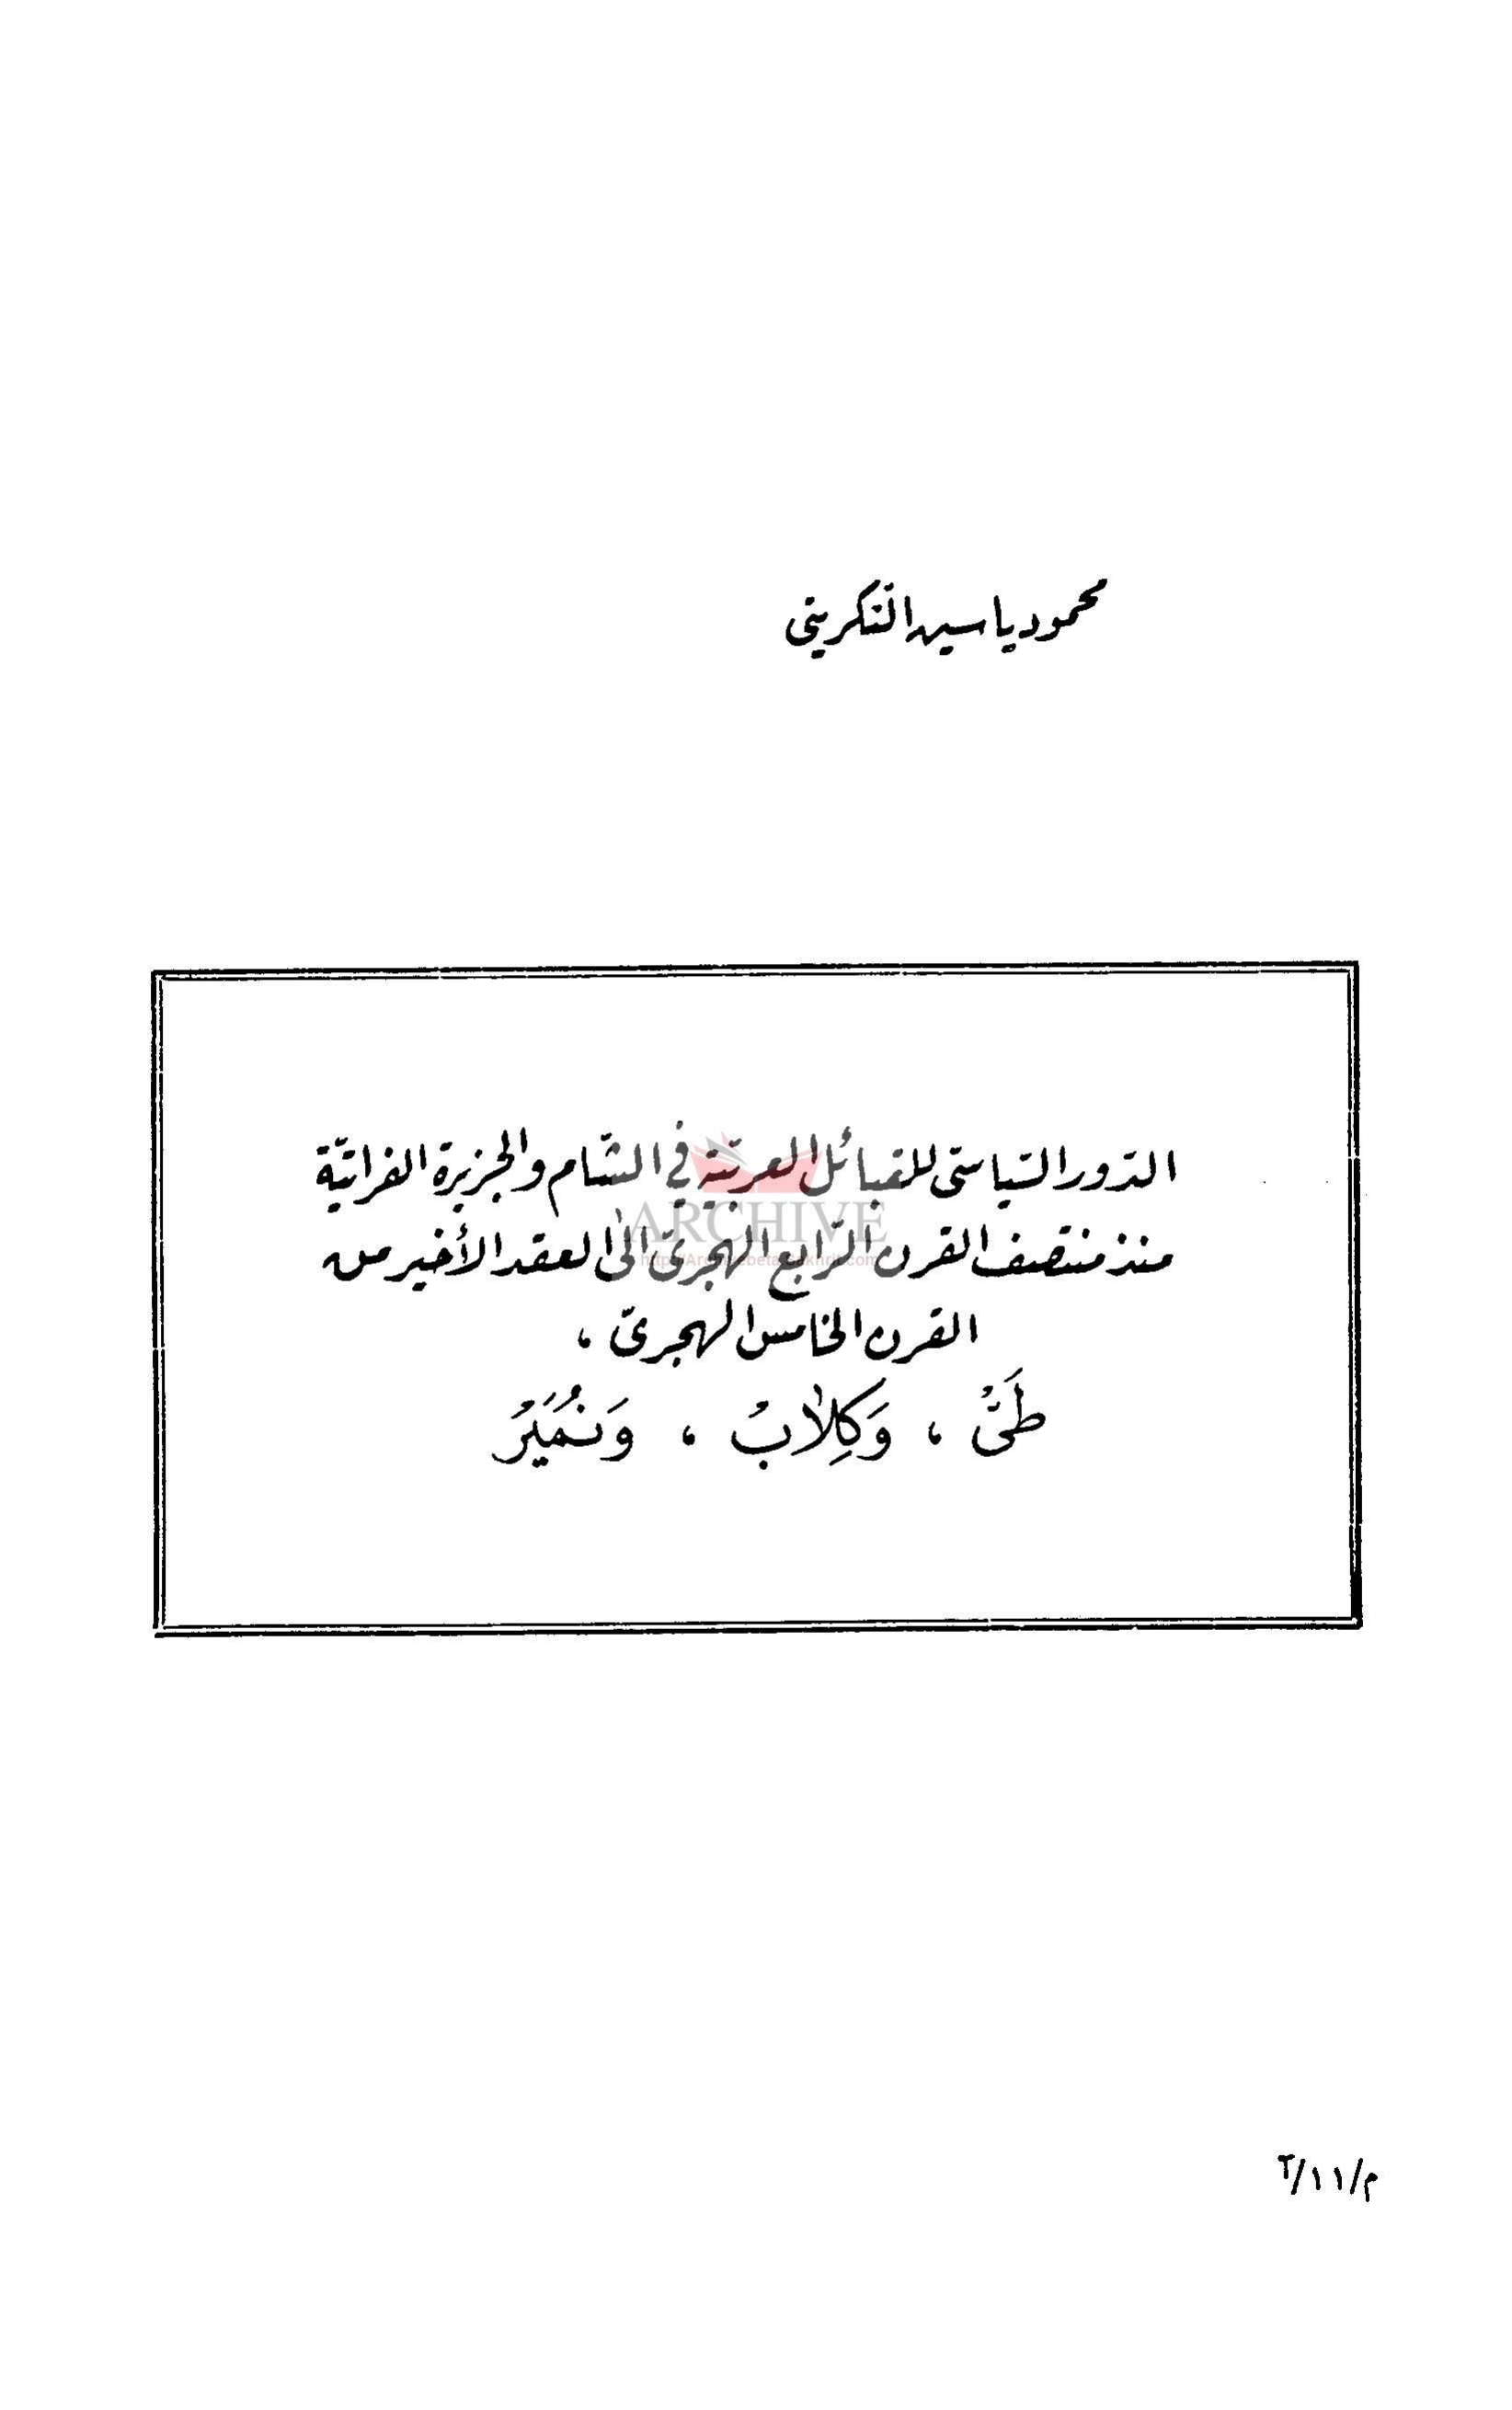 محمود ياسين التكريتي
الدّور السّياسيّ للقبائل العربيّة في الشّام والجزيرة الفراتيّة
منذ منتصف القرن الرّابع الهجريّ الى العقد الأخير من
القرن الخامس الهجريّ ،
طَيّْ ، وَكِلابْ ، وَنُمَيَرْ
ARCHIVE
م/١١/٢